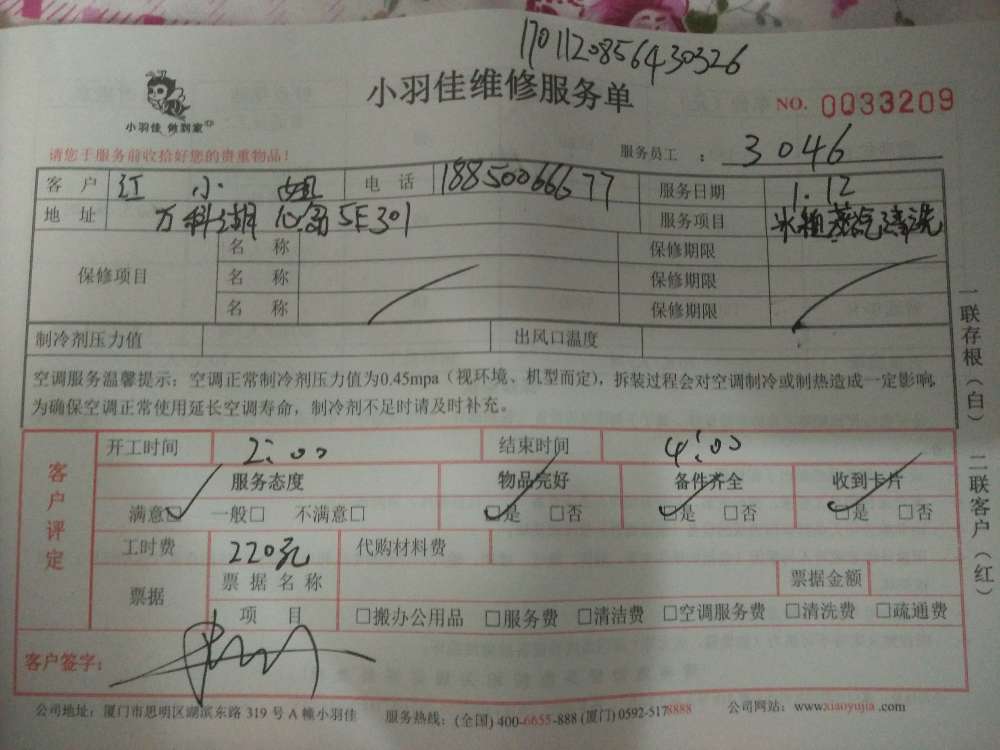 1701120856430326
小羽佳维修服务单
NO. 0033209
小羽佳 做到家
请您于服务前收拾好您的贵重物品!
服务员工 : 3046
客 户 江 小 姐 电 话 18850066677 服务日期 1.12
地 址 万科湖心岛5E301 服务项目 冰箱蒸汽清洗
保修项目 名 称 保修期限
名 称 保修期限
名 称 保修期限
制冷剂压力值 出风口温度
空调服务温馨提示:空调正常制冷剂压力值为0.45mpa(视环境、机型而定),拆装过程会对空调制冷或制热造成一定影响,
为确保空调正常使用延长空调寿命,制冷剂不足时请及时补充。
一联存根(白) 二联客户(红)
客户评定
开工时间 2:00 结束时间 4:00
服务态度 物品完好 备件齐全 收到卡片
满意☑ 一般□ 不满意□ ☑是 □否 ☑是 □否 ☑是 □否
工时费 220元 代购材料费
票据 票据名称 票据金额
项 目 □搬办公用品 □服务费 □清洁费 □空调服务费 □清洗费 □疏通费
客户签字:
公司地址:厦门市思明区湖滨东路 319 号 A 幢小羽佳 服务热线:(全国) 400-6655-888 (厦门) 0592-5178888 公司网站:www.xiaoyujia.com